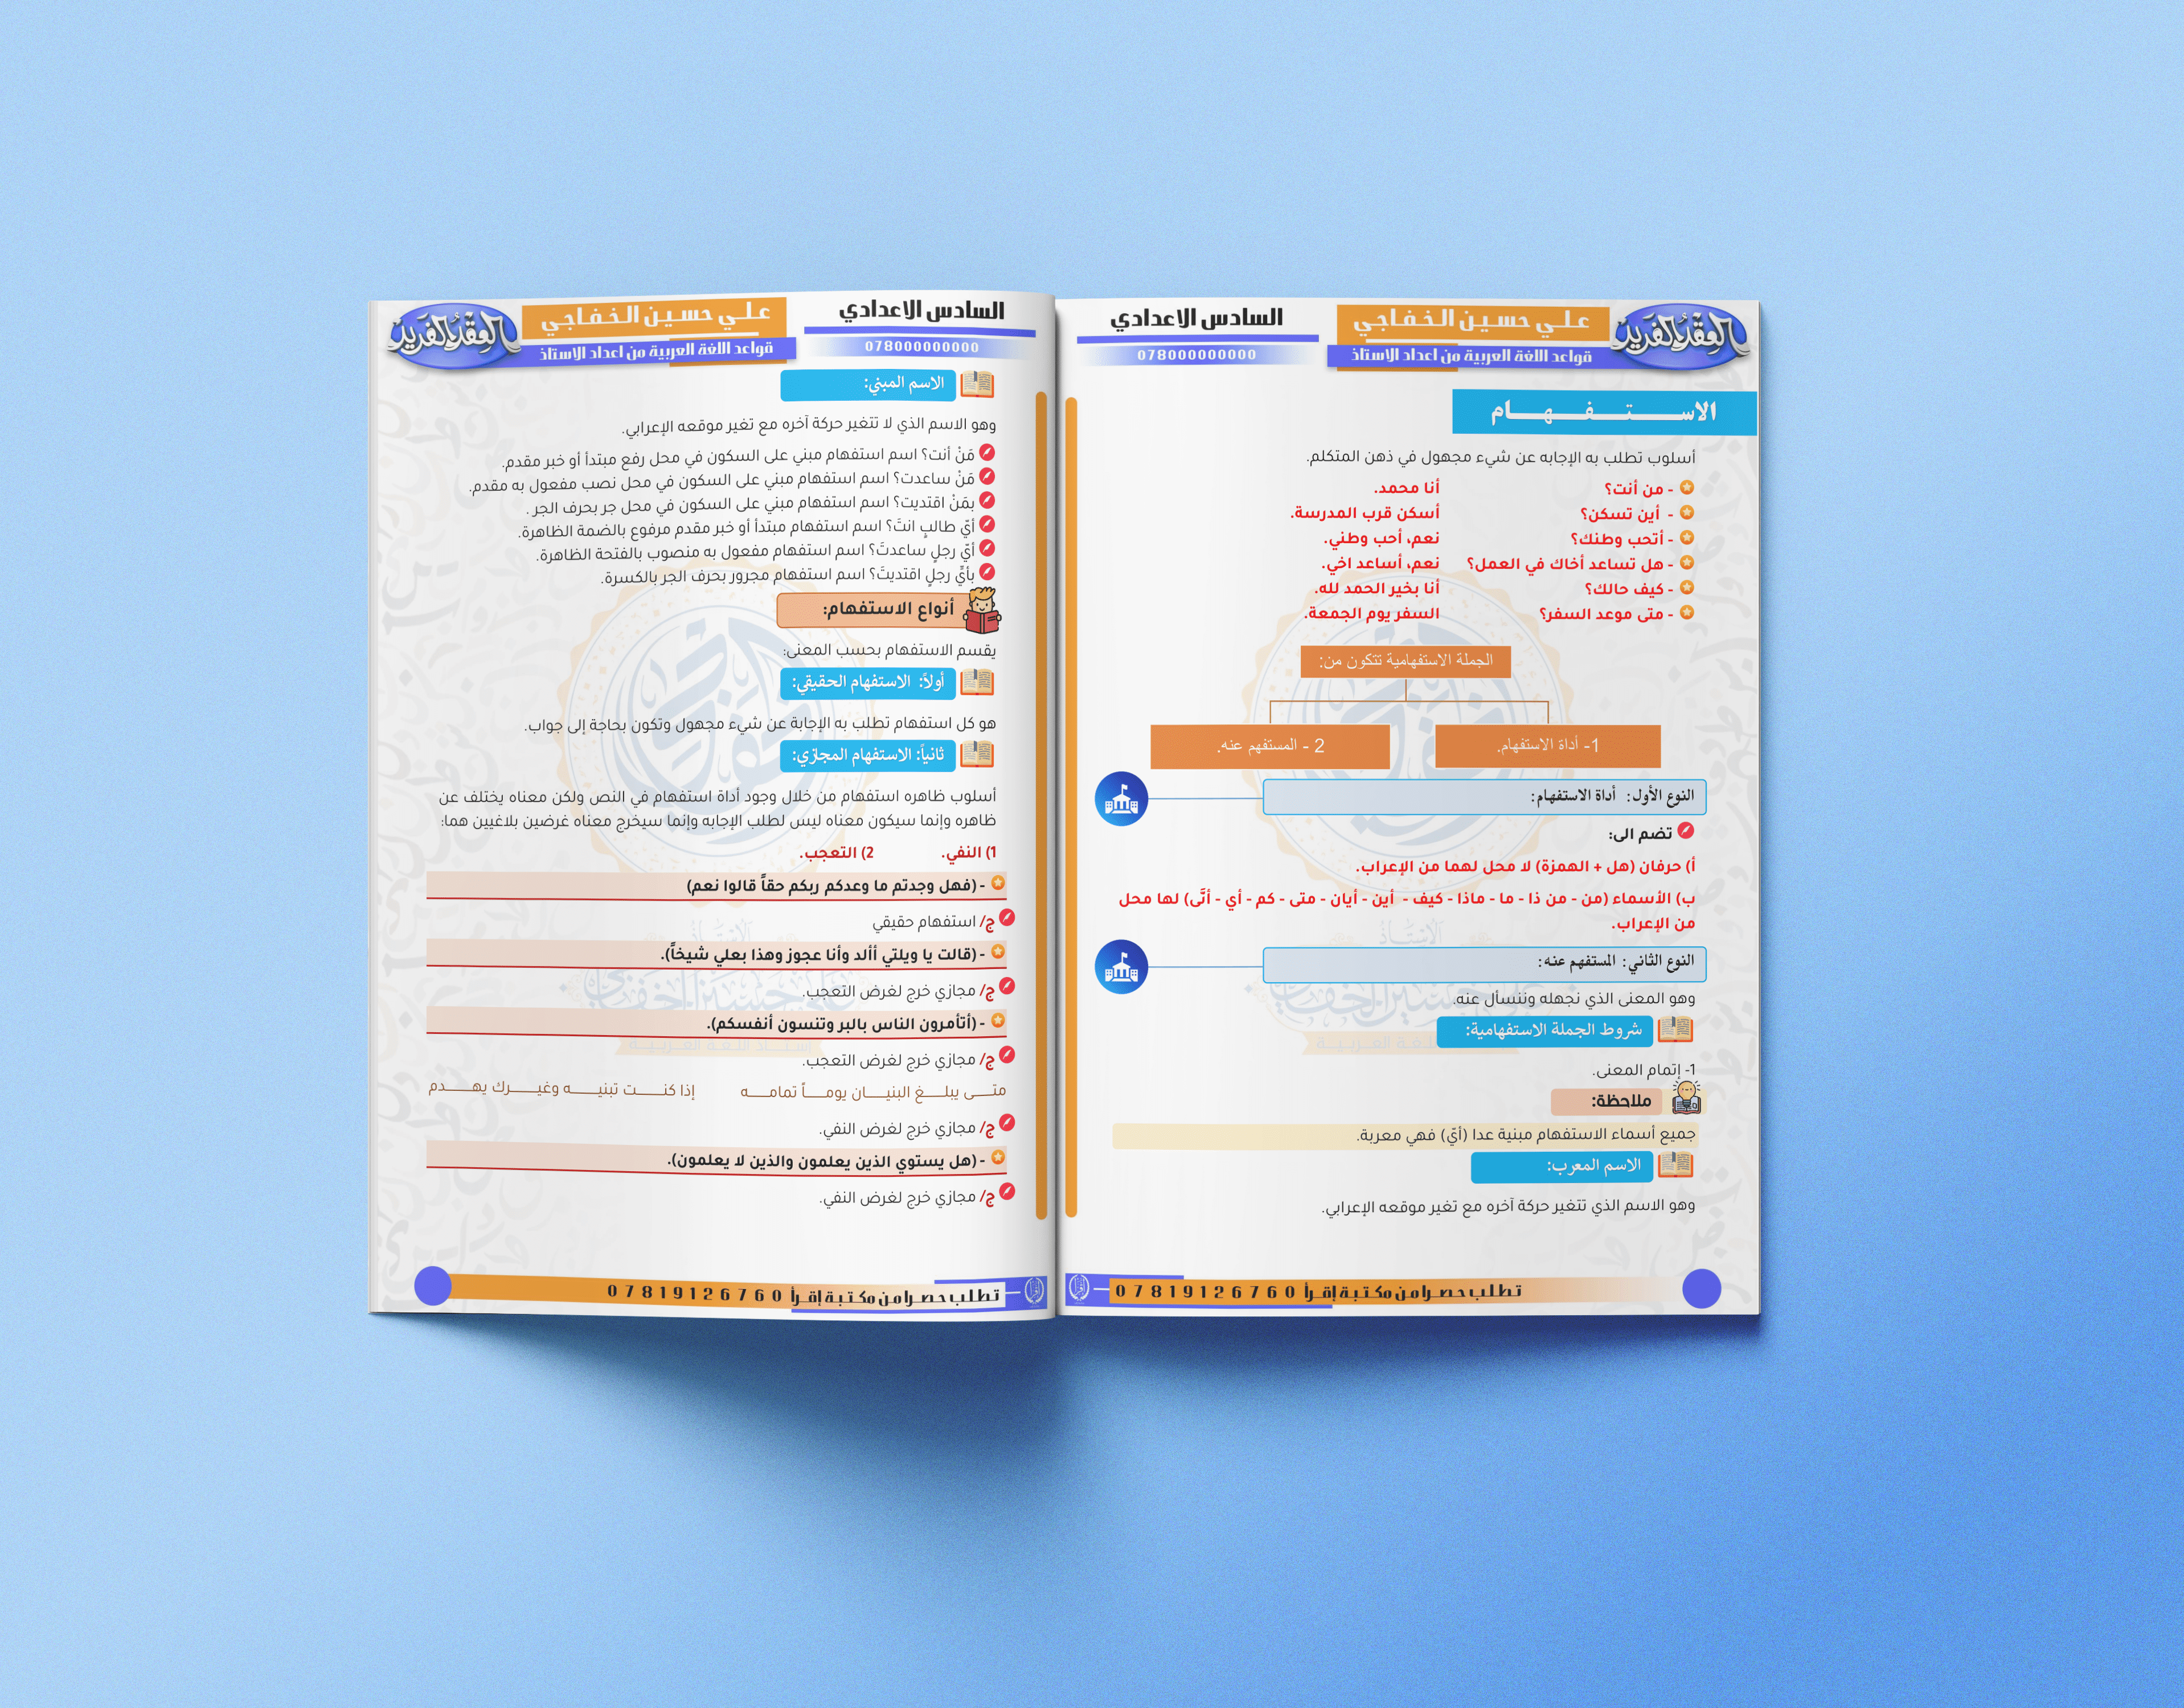 العقد الفريد
علي حسين الخفاجي
قواعد اللغة العربية من اعداد الاستاذ
السادس الاعدادي
078000000000
الاستفهام
أسلوب تطلب به الإجابه عن شيء مجهول في ذهن المتكلم.
- من أنت؟ أنا محمد.
- أين تسكن؟ أسكن قرب المدرسة.
- أتحب وطنك؟ نعم، أحب وطني.
- هل تساعد أخاك في العمل؟ نعم، أساعد اخي.
- كيف حالك؟ أنا بخير الحمد لله.
- متى موعد السفر؟ السفر يوم الجمعة.
الجملة الاستفهامية تتكون من:
1- أداة الاستفهام.
2 - المستفهم عنه.
النوع الأول: أداة الاستفهام:
تضم الى:
أ) حرفان (هل + الهمزة) لا محل لهما من الإعراب.
ب) الأسماء (من - من ذا - ما - ماذا - كيف - أين - أيان - متى - كم - أي - أنَّى) لها محل
من الإعراب.
النوع الثاني: المستفهم عنه:
وهو المعنى الذي نجهله وننسأل عنه.
شروط الجملة الاستفهامية:
1- إتمام المعنى.
ملاحظة:
جميع أسماء الاستفهام مبنية عدا (أيّ) فهي معربة.
الاسم المعرب:
وهو الاسم الذي تتغير حركة آخره مع تغير موقعه الإعرابي.
تطلب حصرا من مكتبة إقرأ 07819126760
العقد الفريد
علي حسين الخفاجي
قواعد اللغة العربية من اعداد الاستاذ
السادس الاعدادي
078000000000
الاسم المبني:
وهو الاسم الذي لا تتغير حركة آخره مع تغير موقعه الإعرابي.
مَنْ أنت؟ اسم استفهام مبني على السكون في محل رفع مبتدأ أو خبر مقدم.
مَنْ ساعدت؟ اسم استفهام مبني على السكون في محل نصب مفعول به مقدم.
بمَنْ اقتديت؟ اسم استفهام مبني على السكون في محل جر بحرف الجر .
أيّ طالبٍ انتَ؟ اسم استفهام مبتدأ أو خبر مقدم مرفوع بالضمة الظاهرة.
أيّ رجلٍ ساعدتَ؟ اسم استفهام مفعول به منصوب بالفتحة الظاهرة.
بأيِّ رجلٍ اقتديتَ؟ اسم استفهام مجرور بحرف الجر بالكسرة.
أنواع الاستفهام:
يقسم الاستفهام بحسب المعنى:
أولاً: الاستفهام الحقيقي:
هو كل استفهام تطلب به الإجابة عن شيء مجهول وتكون بحاجة إلى جواب.
ثانياً: الاستفهام المجازي:
أسلوب ظاهره استفهام من خلال وجود أداة استفهام في النص ولكن معناه يختلف عن
ظاهره وإنما سيكون معناه ليس لطلب الإجابه وإنما سيخرج معناه غرضين بلاغيين هما:
1) النفي. 2) التعجب.
- (فهل وجدتم ما وعدكم ربكم حقاً قالوا نعم)
ج/ استفهام حقيقي
- (قالت يا ويلتي أألد وأنا عجوز وهذا بعلي شيخاً).
ج/ مجازي خرج لغرض التعجب.
- (أتأمرون الناس بالبر وتنسون أنفسكم).
ج/ مجازي خرج لغرض التعجب.
متى يبلغ البنيان يوماً تمامه إذا كنت تبنيه وغيرك يهدم
ج/ مجازي خرج لغرض النفي.
- (هل يستوي الذين يعلمون والذين لا يعلمون).
ج/ مجازي خرج لغرض النفي.
تطلب حصرا من مكتبة إقرأ 07819126760